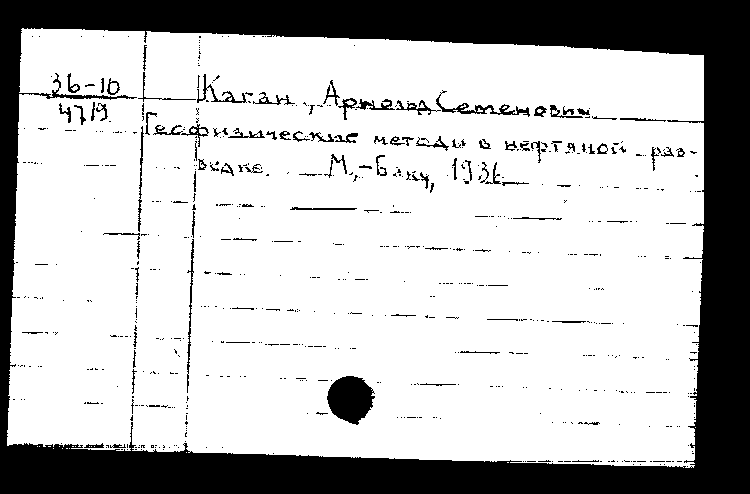 36-10
4719
Каган, Арнольд Семенович
Геофизические методы в нефтяной раз-
ведке. М.,-Баку, 1936.